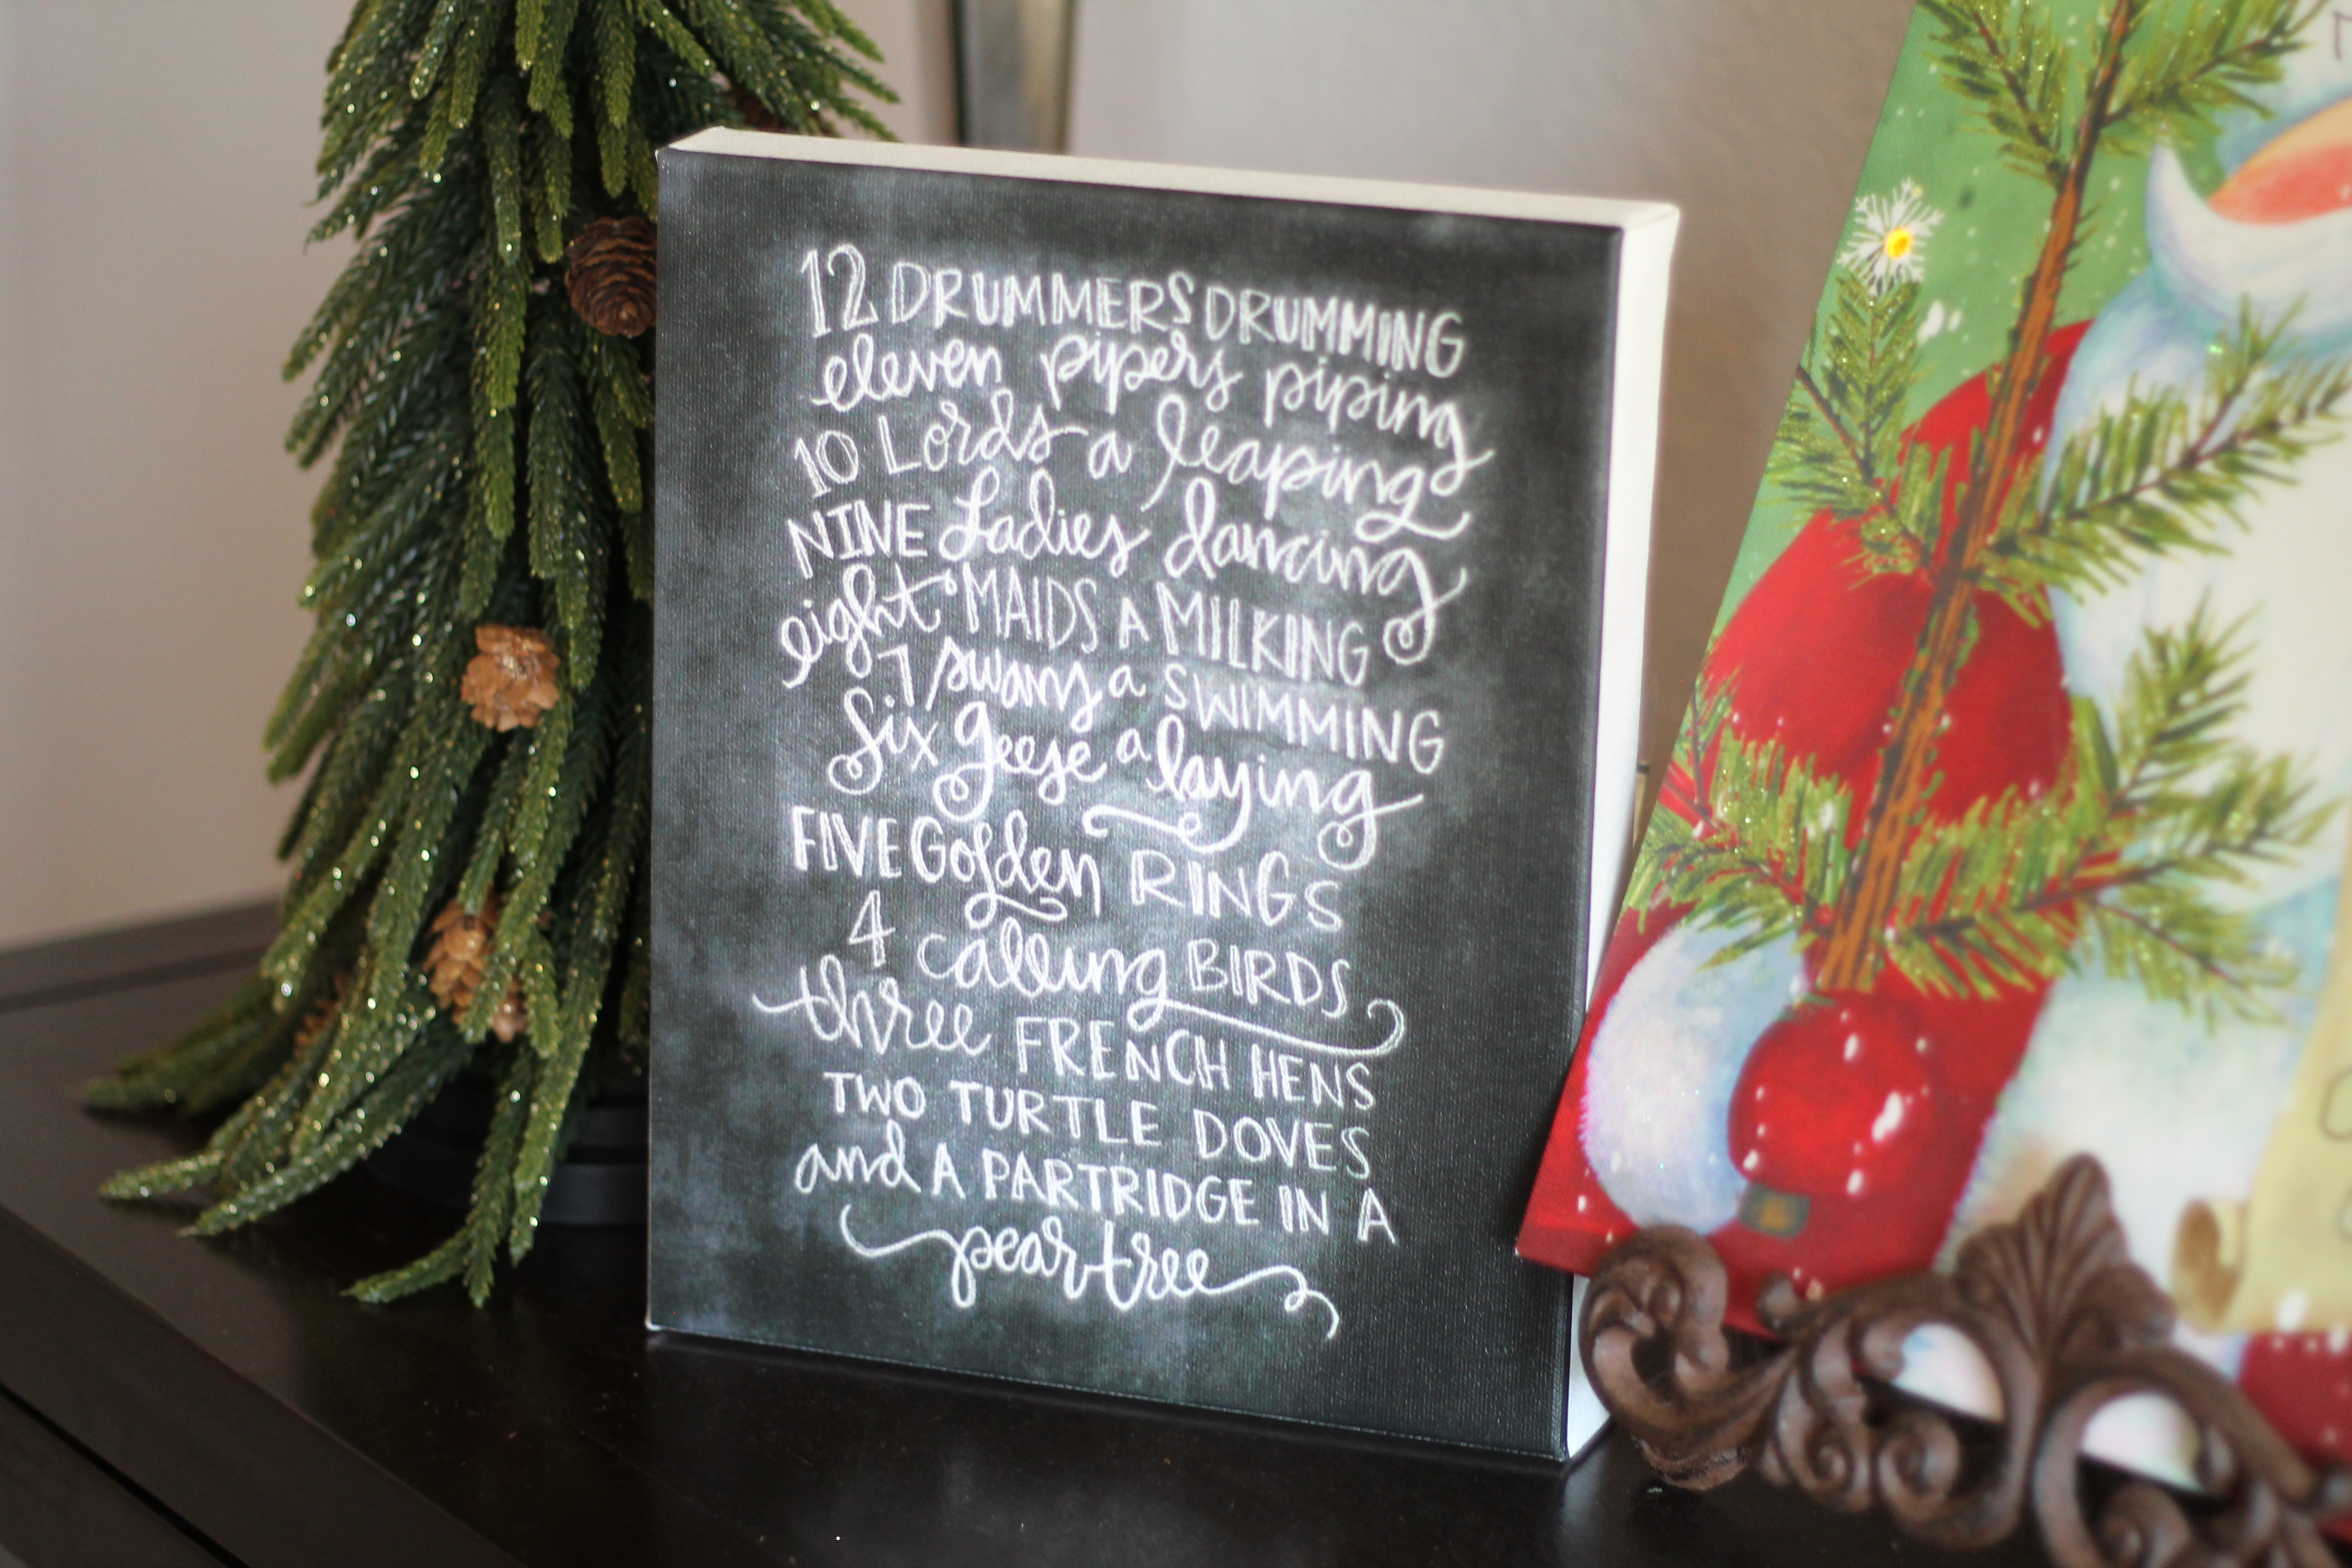 12 DRUMMERS DRUMMING
eleven pipers piping
10 Lords a leaping
NINE Ladies dancing
eight MAIDS A MILKING
7 swans a SWIMMING
Six geese a laying
FIVE Golden RINGS
4 calling BIRDS
three FRENCH HENS
TWO TURTLE DOVES
and A PARTRIDGE IN A
pear tree